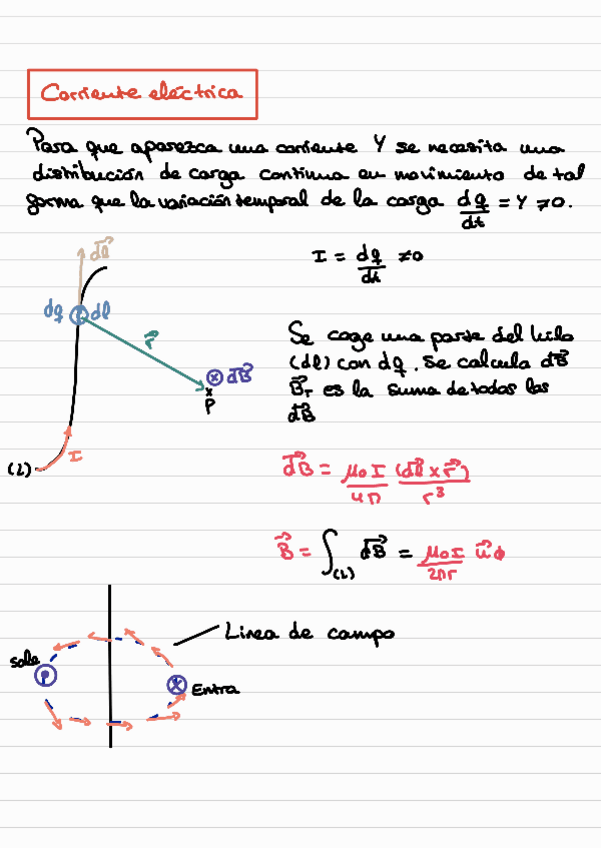 Corriente eléctrica
Para que aparezca una corriente Y se necesita una
distribución de carga continua en movimiento de tal
forma que la variación temporal de la carga dq/dt = Y ≠ 0.
I = dq/dt ≠ 0
dl⃗
dq dl
r⃗
dB⃗
P
I
(L)
Se coge una parte del hilo
(dl) con dq. Se calcula dB⃗
B⃗T es la suma de todos los
dB⃗
dB⃗ = μ0 I/4π (dl⃗ × r⃗)/r³
B⃗ = ∫(L) dB⃗ = μ0 I/2πr u⃗ϕ
Linea de campo
Sale
Entra